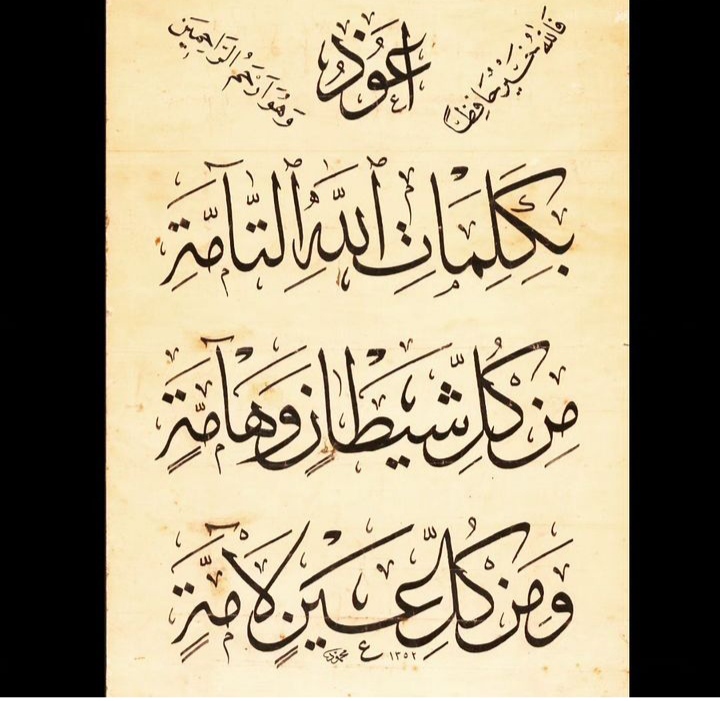 فَاللهُ خَيْرٌ حَافِظًا
أَعُوذُ
وَهُوَ أَرْحَمُ الرَّاحِمِينَ
بِكَلِمَاتِ اللهِ التَّامَّةِ
مِنْ كُلِّ شَيْطَانٍ وَهَامَّةٍ
وَمِنْ كُلِّ عَيْنٍ لَامَّةٍ
١٣٥٢